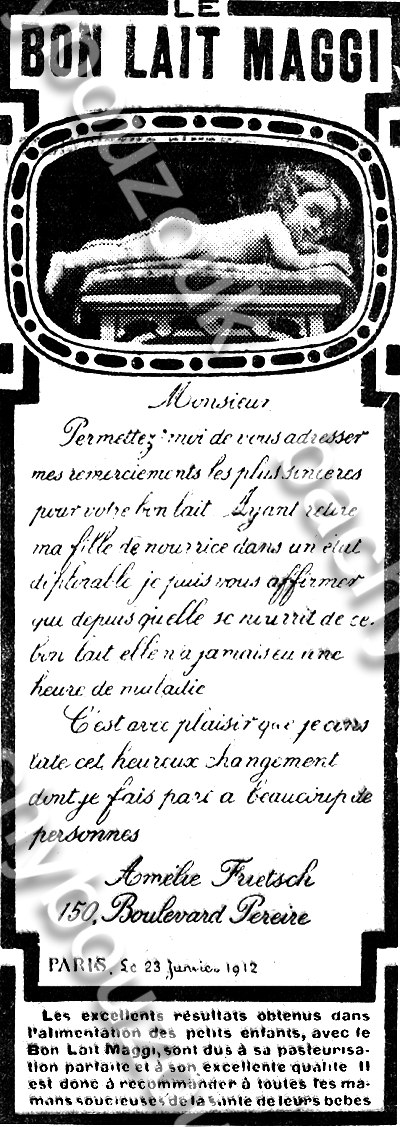 LE
BON LAIT MAGGI
Monsieur
Permettez moi de vous adresser
mes remerciements les plus sinceres
pour votre bon lait Ayant retire
ma fille de nourrice dans un état
déplorable je puis vous affirmer
que depuis quelle se nourrit de ce
bon lait elle n'a jamais eu une
heure de maladie
C'est avec plaisir que je cons
tate cet heureux changement
dont je fais part a beaucoup de
personnes
Amélie Frietsch
150, Boulevard Pereire
PARIS, Le 23 Janvier 1912
Les excellents résultats obtenus dans
l'alimentation des petits enfants, avec le
Bon Lait Maggi, sont dus à sa pasteurisa-
tion parfaite et à son excellente qualité Il
est donc à recommander à toutes les ma-
mans soucieuses de la santé de leurs bébés